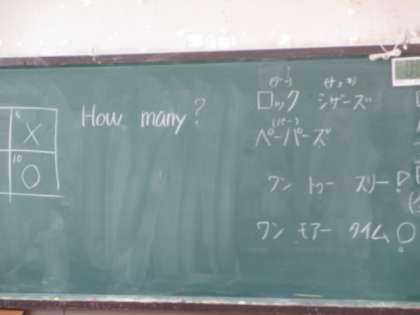 5
X
10
O
How many?
(グー) (チョキ)
ロック シザーズ
(パー)
ペーパーズ
ワン トゥー スリー!
ワン モアー タイム